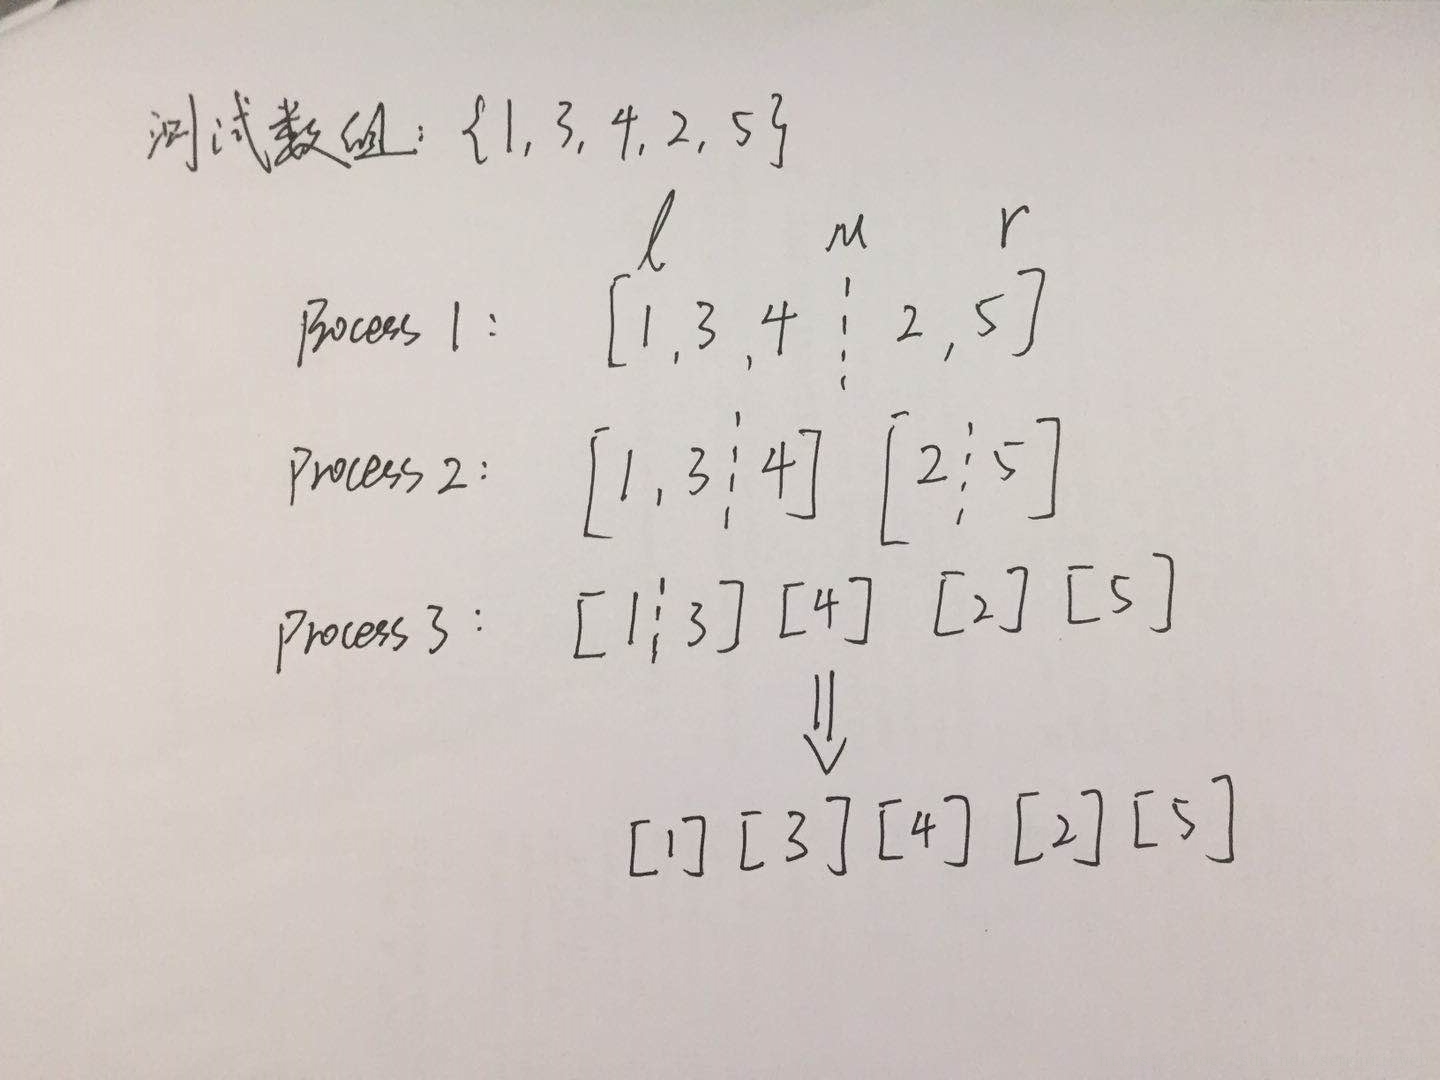 测试数组: {1, 3, 4, 2, 5}
l m r
Process 1: [1, 3, 4 ¦ 2, 5]
Process 2: [1, 3 ¦ 4] [2 ¦ 5]
Process 3: [1 ¦ 3] [4] [2] [5]
⇓
[1] [3] [4] [2] [5]